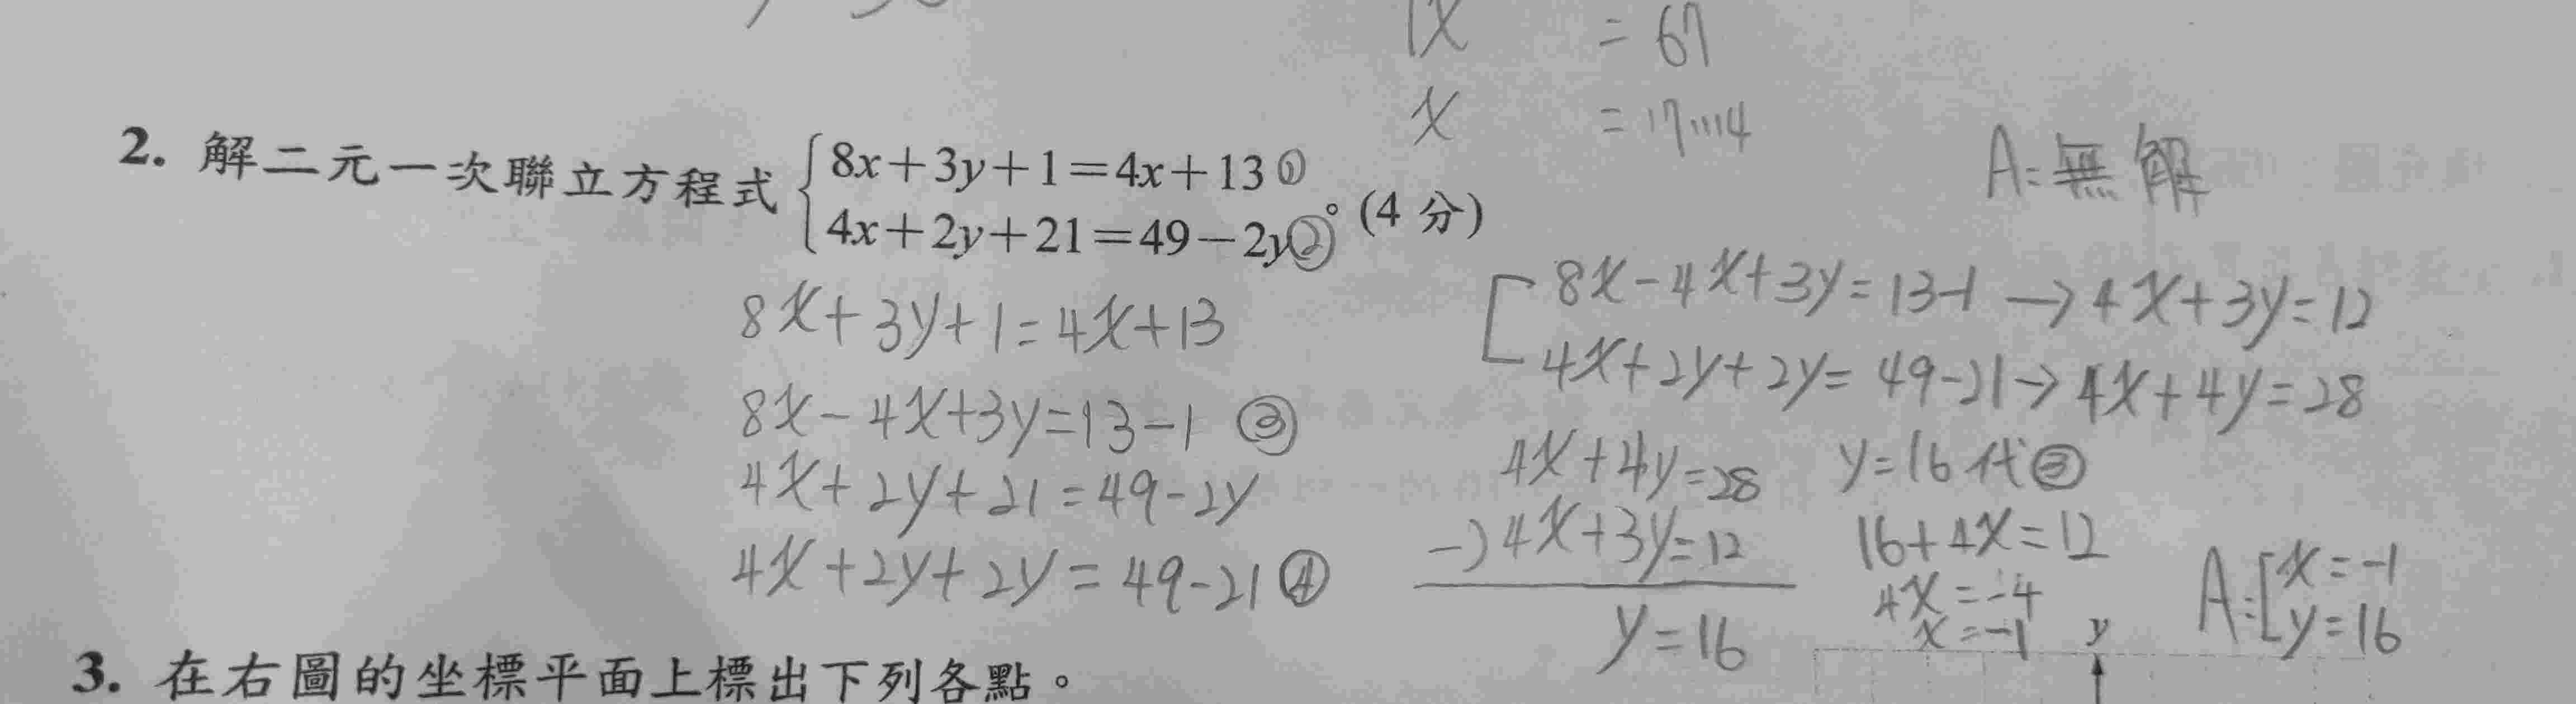 x = 67
x = 17...4
A:無解
2. 解二元一次聯立方程式 { 8x+3y+1=4x+13 ①
4x+2y+21=49-2y ② 。(4 分)
8x+3y+1=4x+13
8x-4x+3y=13-1 ③
4x+2y+21=49-2y
4x+2y+2y=49-21 ④
[ 8x-4x+3y=13-1 → 4x+3y=12
4x+2y+2y=49-21 → 4x+4y=28
4x+4y=28
-) 4x+3y=12
y=16
y=16代③
16+4x=12
4x=-4
x=-1
A:[ x=-1
y=16
y
3. 在右圖的坐標平面上標出下列各點。